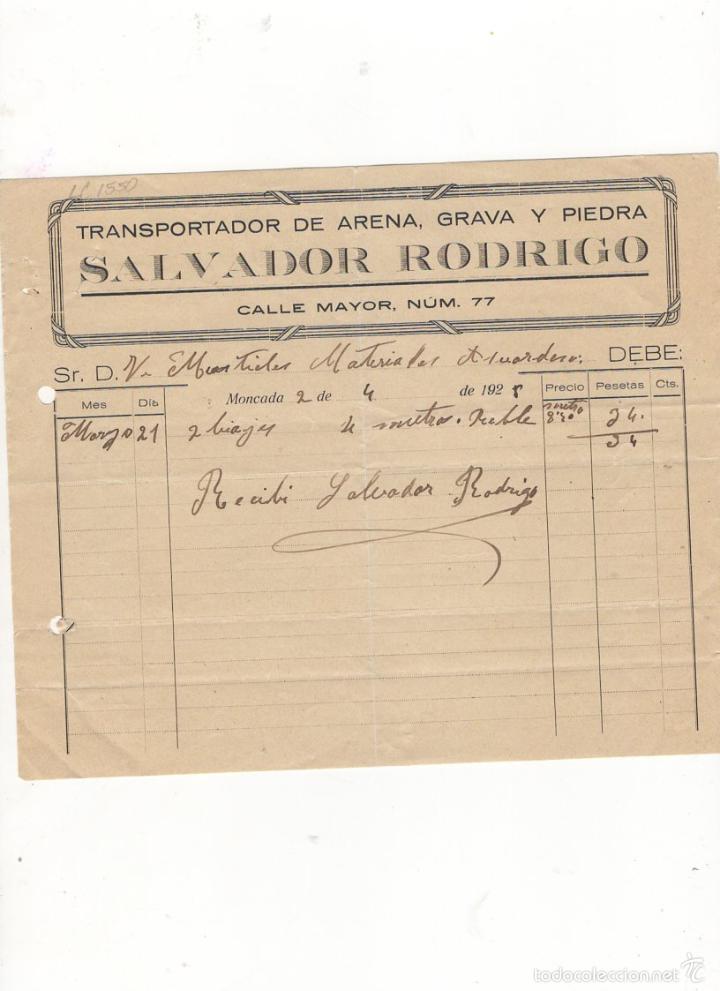 TRANSPORTADOR DE ARENA, GRAVA Y PIEDRA
SALVADOR RODRIGO
CALLE MAYOR, NÚM. 77
Sr. D. Materiales DEBE:
Moncada 2 de 4 de 1928
Mes Día Precio Pesetas Cts.
Marzo 21 2 biajes 4 metros metro 34.
34
Recibi Salvador Rodrigo
todocoleccion.net